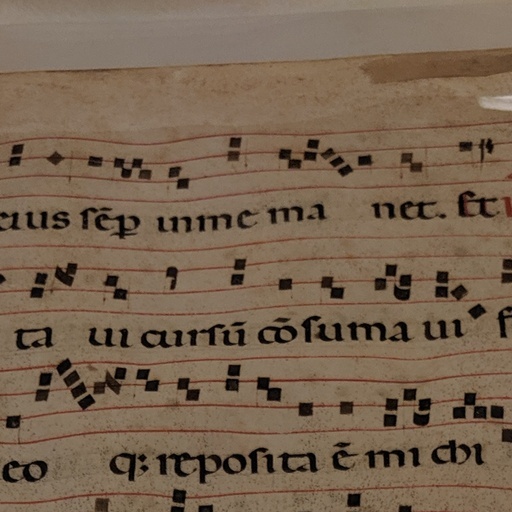 eius sẽp in me ma net. Et
ta ui cursũ cõsuma ui f
eo q; reposita ẽ mi chi